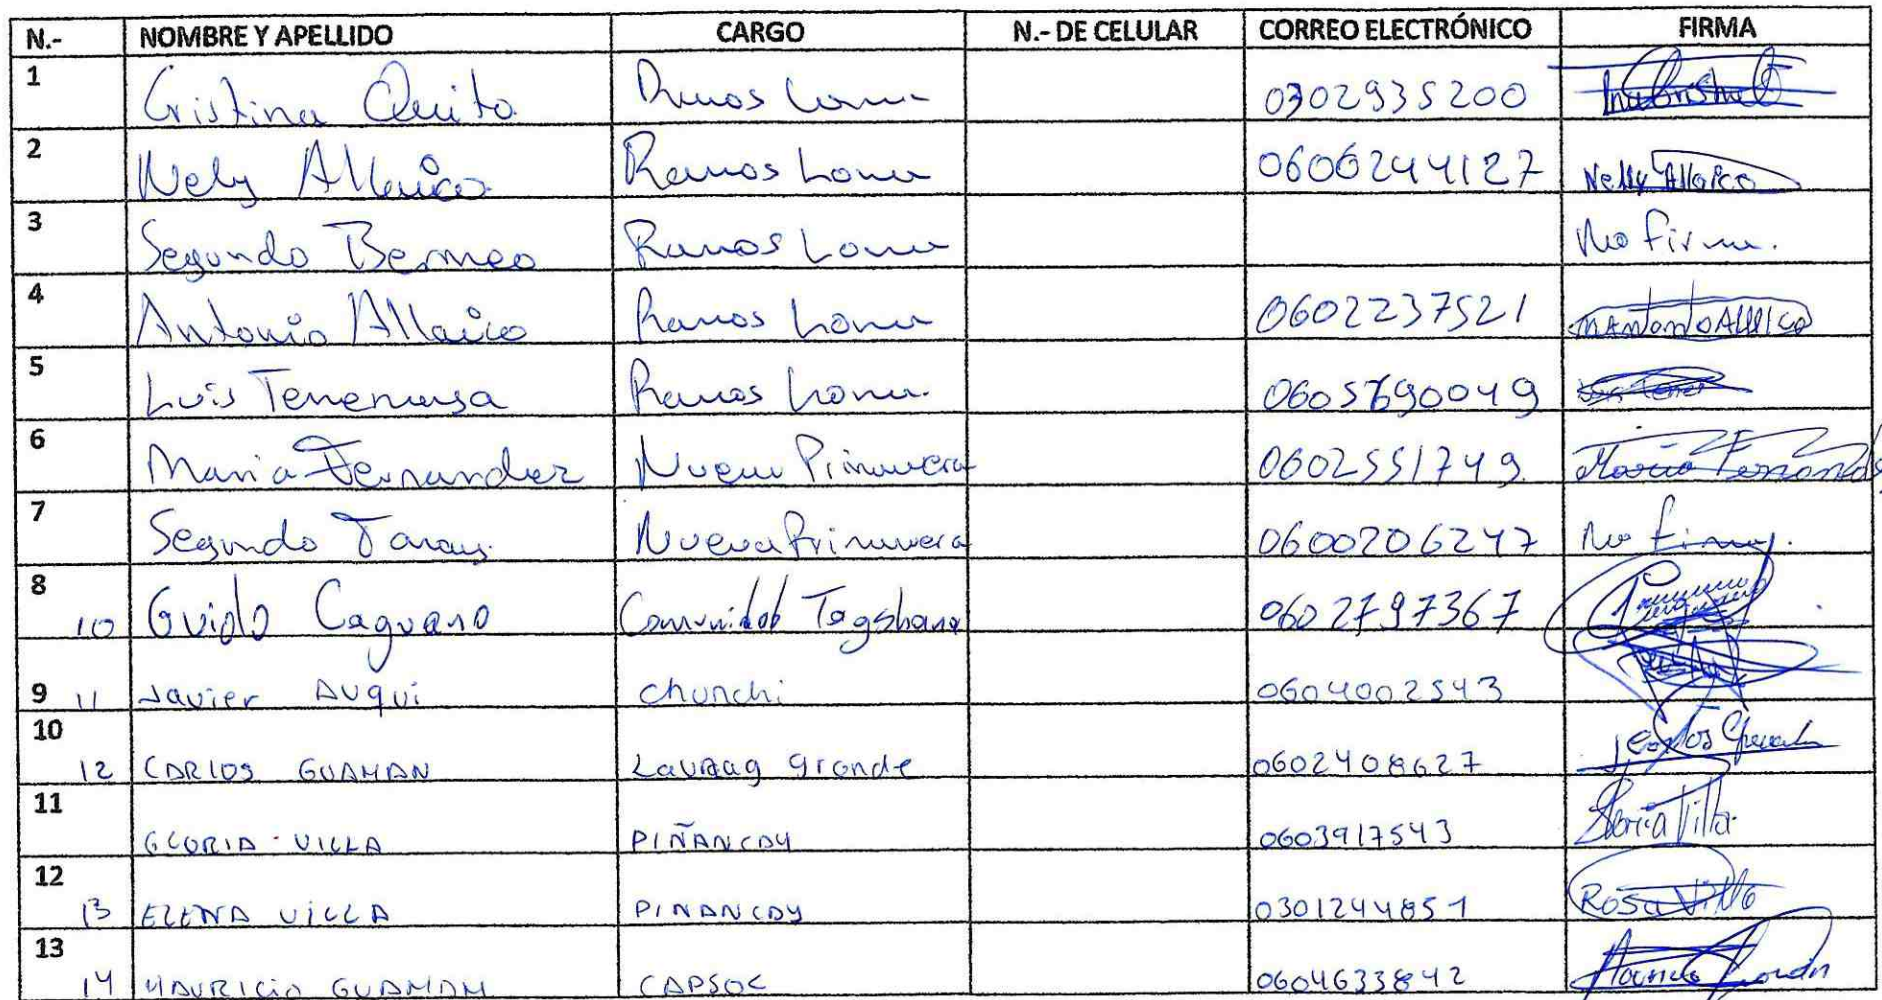 N.- NOMBRE Y APELLIDO CARGO N.- DE CELULAR CORREO ELECTRÓNICO FIRMA
1 Cristina Quito Ramos Loma 0302935200
2 Nely Allaico Ramos Loma 0606244127 Nelly Allaico
3 Segundo Bermeo Ramos Loma No firma.
4 Antonio Allaico Ramos Loma 0602237521
5 Luis Tenemasa Ramos Loma. 0605690049
6 Maria Fernandez Nueva Primavera 0602551749 Maria Fernandez
7 Segundo Nueva Primavera 0600206247 No firma.
8 10 Guido Caguano Comunidad Togshana 0602797367
9 11 Javier Auqui chunchi 0604002543
10 12 CARLOS GUAMAN Launag grande 0602408627 Carlos
11 GLORIA - VILLA PIÑANCAY 0603917543 Gloria Villa
12 13 ELENA VILLA PINANCAY 0301244851 Rosa Villa
13 14 MAURICIO GUAMAN CAPSOC 0604633842